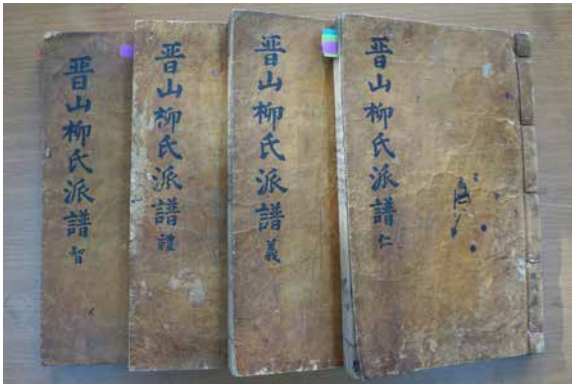 晋山柳氏派譜 仁
晋山柳氏派譜 義
晋山柳氏派譜 禮
晋山柳氏派譜 智